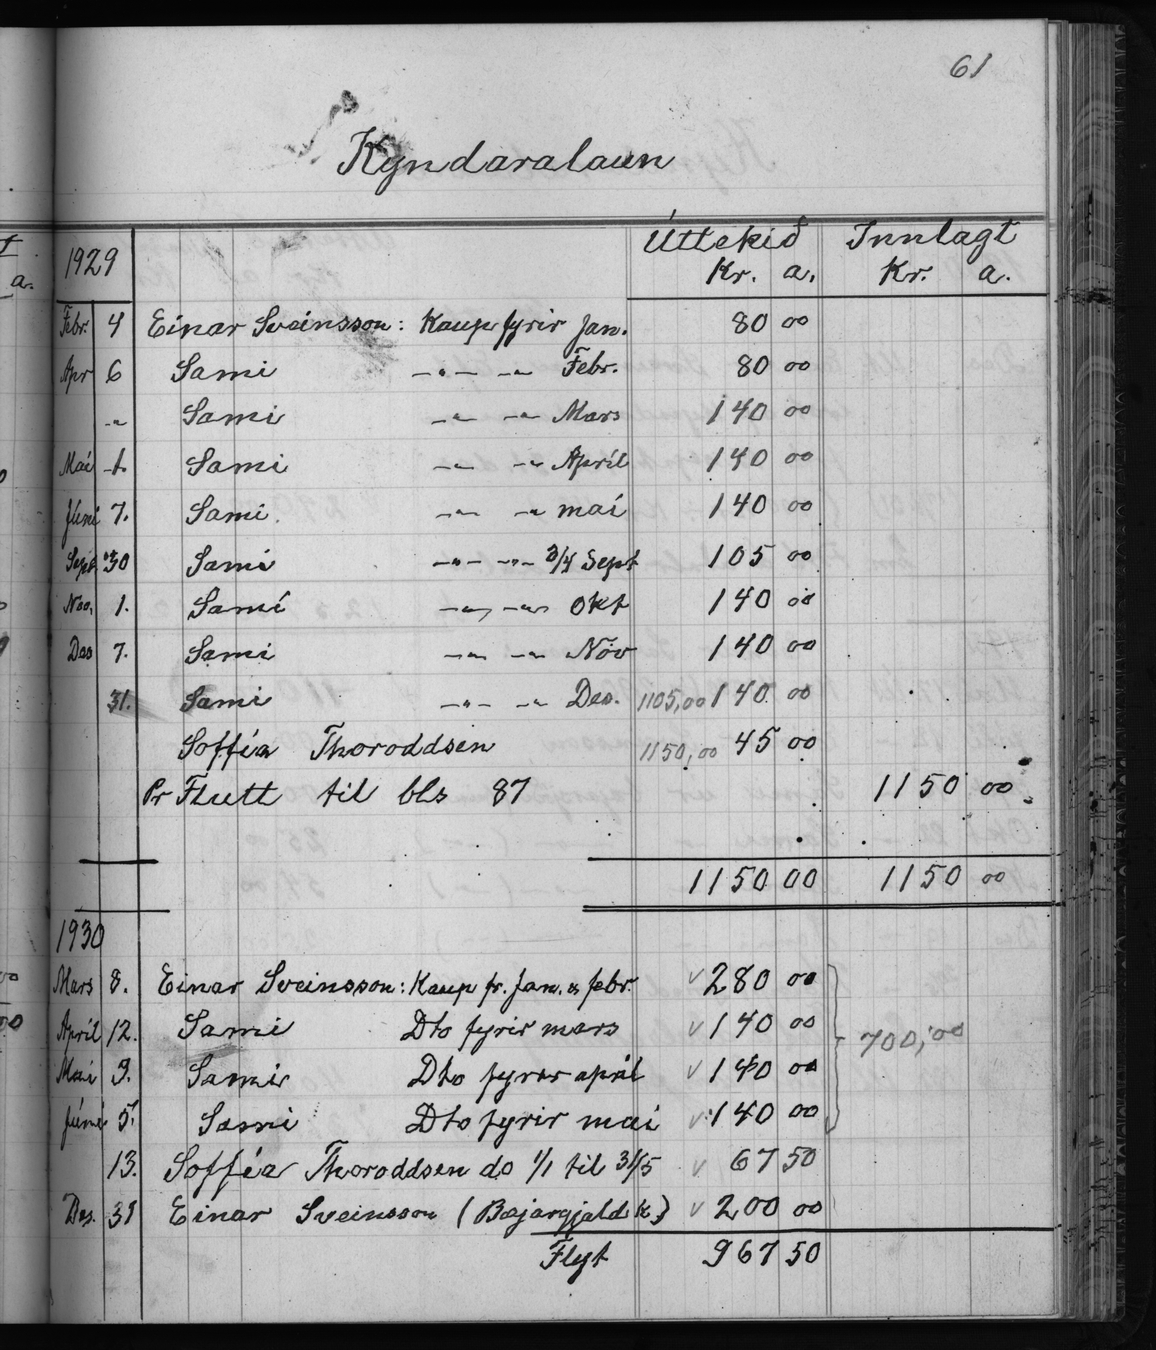 61
Kyndaralaun
1929 Úttekið Innlagt
Kr. a. Kr. a.
Febr. 4 Einar Sveinsson: Kaup fyrir Jan. 80 00
Apr 6 Sami -„- -„- Febr. 80 00
-„- Sami -„- -„- Mars 140 00
Maí 1. Sami -„- -„- Apríl 140 00
Júní 7. Sami -„- -„- maí 140 00
Sept 30 Sami -„- -„- 3/4 Sept 105 00
Nov. 1. Sami -„- -„- Okt 140 00
Des 7. Sami -„- -„- Nóv 140 00
31. Sami -„- -„- Des. 1105,00 140 00
Soffía Thoroddsen 1150,00 45 00
Pr Flutt til bls 87 1150 00
1150 00 1150 00
1930
Mars 8. Einar Sveinsson: Kaup fr. Jan. & febr. 280 00
Apríl 12. Sami Dto fyrir mars 140 00
700,00
Maí 9. Sami Dto fyrir apríl 140 00
Júní 5. Sami Dto fyrir maí 140 00
13. Soffía Thoroddsen do 1/1 til 31/5 67 50
Des. 31 Einar Sveinsson (Bæjargjald k) 200 00
Flyt 967 50